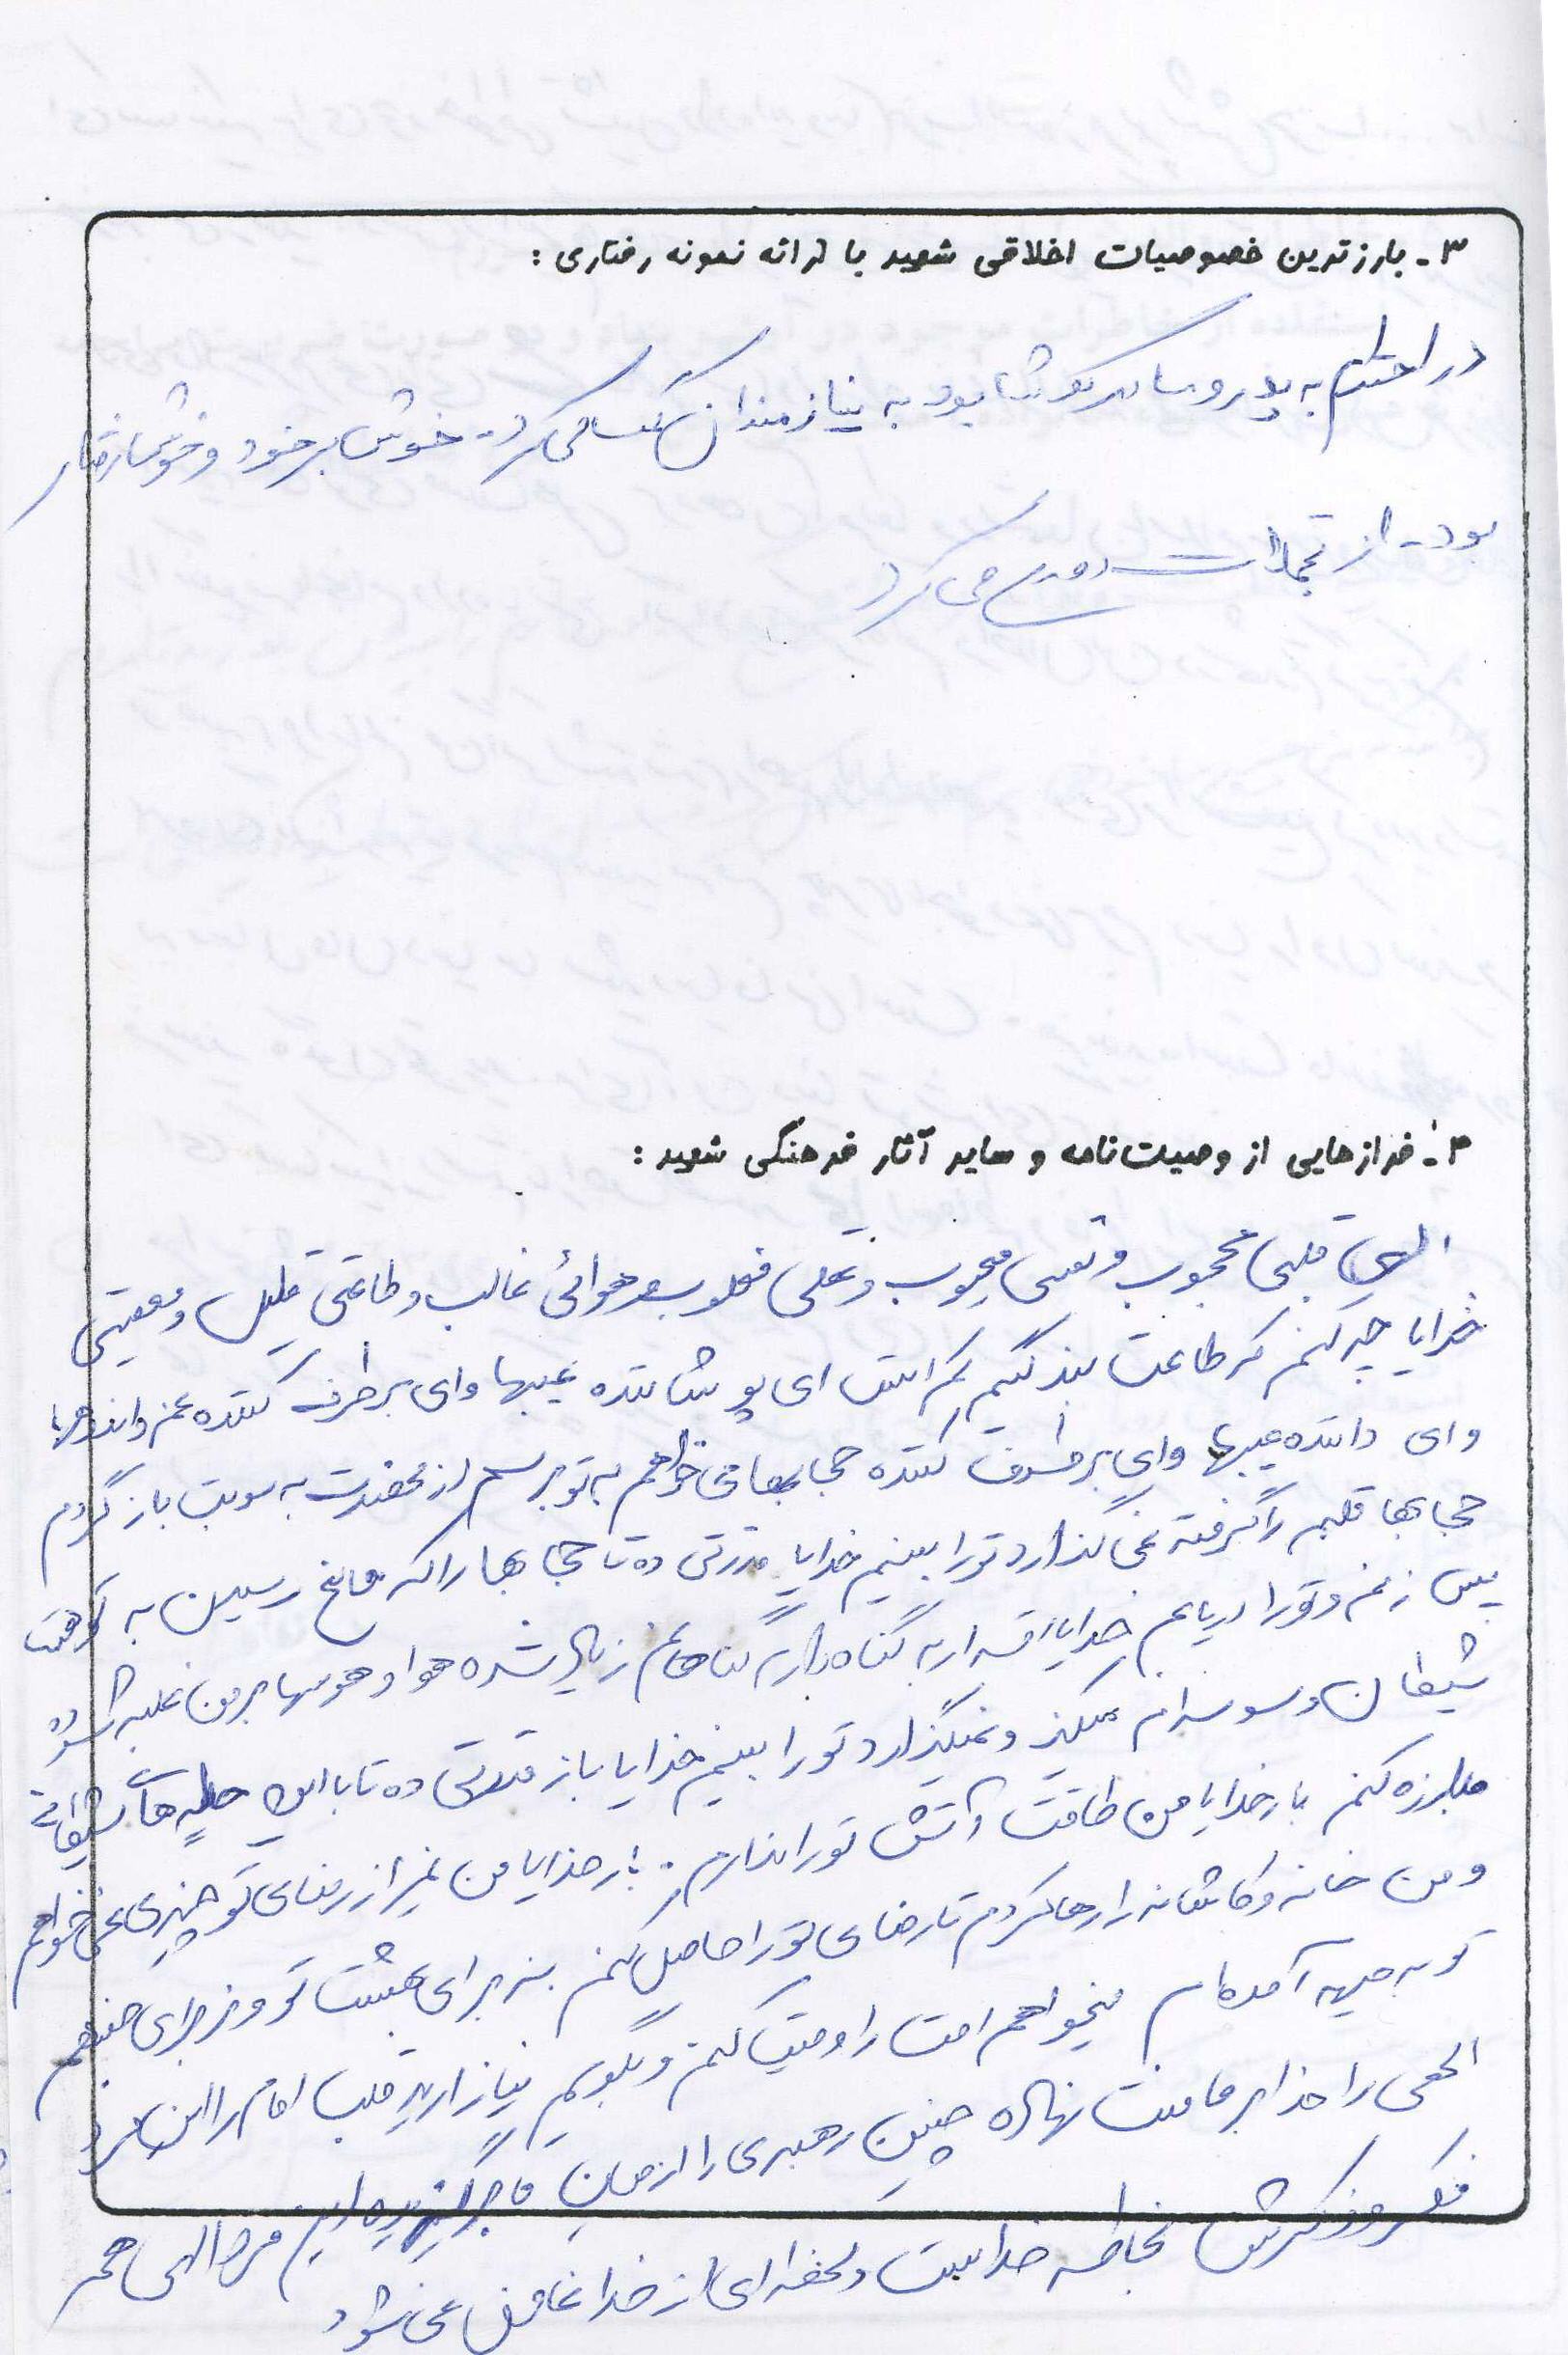 ۳ـ بارزترین خصوصیات اخلاقی شهید با ارائه نمونه رفتاری :
در احترام به پدر و مادر کوشا بود به نیازمندان کمک می‌کرد. خوش برخورد و خوش رفتار
بود ـ از تجملات دوری می کرد
۴ـ فرازهایی از وصیت‌نامه و سایر آثار فرهنگی شهید :
الهی قلبی محجوب و نفسی معیوب و عقلی مغلوب و هوائی غالب و طاعتی قلیل و معصیتی
خدایا چه کنم که طاعت بندگیم کم است ای پوشاننده عیبها وای برطرف کننده غم و اندوهها
وای داننده غیبها وای برطرف کننده حجابها می خواهم به تو برسم از محضرت به سویت باز گردم
حجابها قلبم را گرفته نمی گذارد تو را ببینم خدایا قدرتی ده تا حجابها را که مانع رسیدن به کویت
پس زنم و تو را دریابم خدایا اقرار به گناه دارم گناهانم زیاد شده هوا و هوسها بر من غلبه شده
شیطان وسوسه‌ام میکند و نمیگذارد تو را ببینم خدایا باز قدرتی ده تا با این حیله های شیطانی
مبارزه کنم بار خدایا من طاقت آتش تو را ندارم. بار خدایا من غیر از رضای تو چیزی نمی خواهم
و من خانه و کاشانه را رها کردم تا رضای تو را حاصل کنم نه برای بهشت تو و نه برای جهنم
تو به جبهه آمده‌ام میخواهم امت را وصیت کنم و بگویم نیازارید قلب امام را این مرد
الهی را خدا بر ما منت نهاده چنین رهبری را از میان ما برگزیده این مرد الهی هم
فکر و ذکرش بخاطر خداست و لحظه‌ای از خدا غافل نمی شود